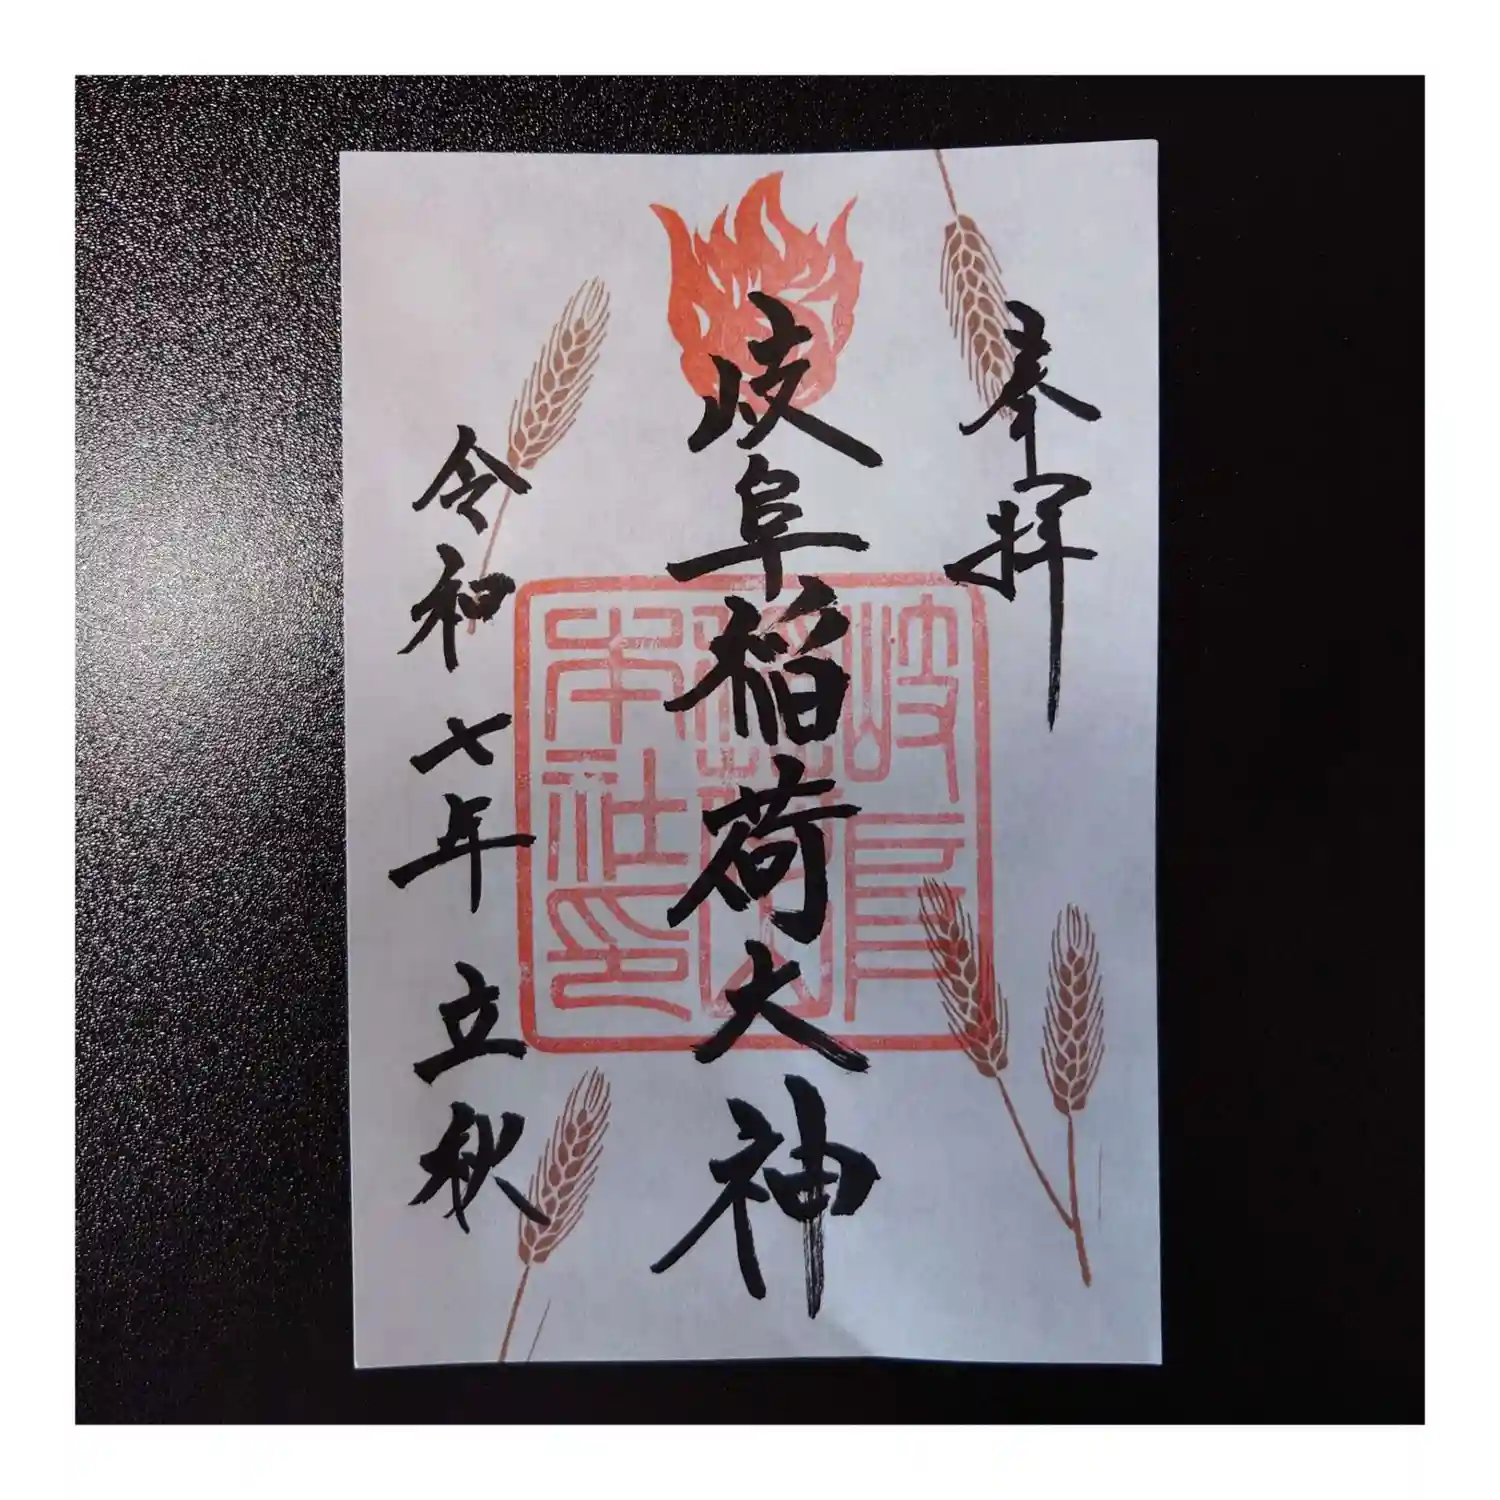 奉拝
岐阜稲荷大神
令和七年立秋
岐阜
稲荷山
本社印